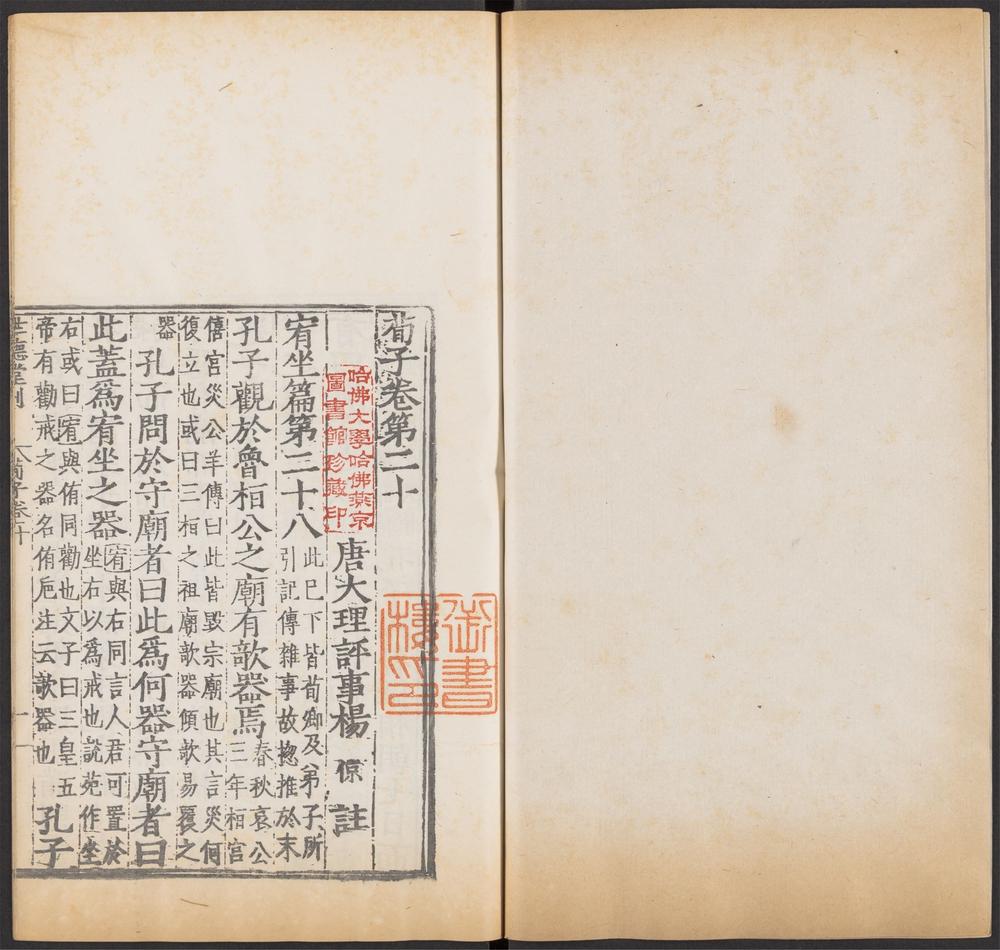 荀子卷第二十
唐大理評事楊 倞 註
哈佛大學哈佛燕京
圖書館珍藏印
御書
樓印
宥坐篇第二十八此巳下皆荀卿及弟子所
引記傳雜事故揔推於末
孔子觀於魯桓公之廟有欹器焉春秋哀公
三年桓宮
僖宮災公羊傳曰此皆毀宗廟也其言災何
復立也或曰三桓之祖廟欹器傾欹易覆之
器
孔子問於守廟者曰此爲何器守廟者曰
此蓋爲宥坐之器宥與右同言人君可置於
坐右以爲戒也說苑作坐
右或曰宥與侑同勸也文子曰三皇五
帝有勸戒之器名侑卮注云欹器也
孔子
世德堂刊
荀子卷二十
一